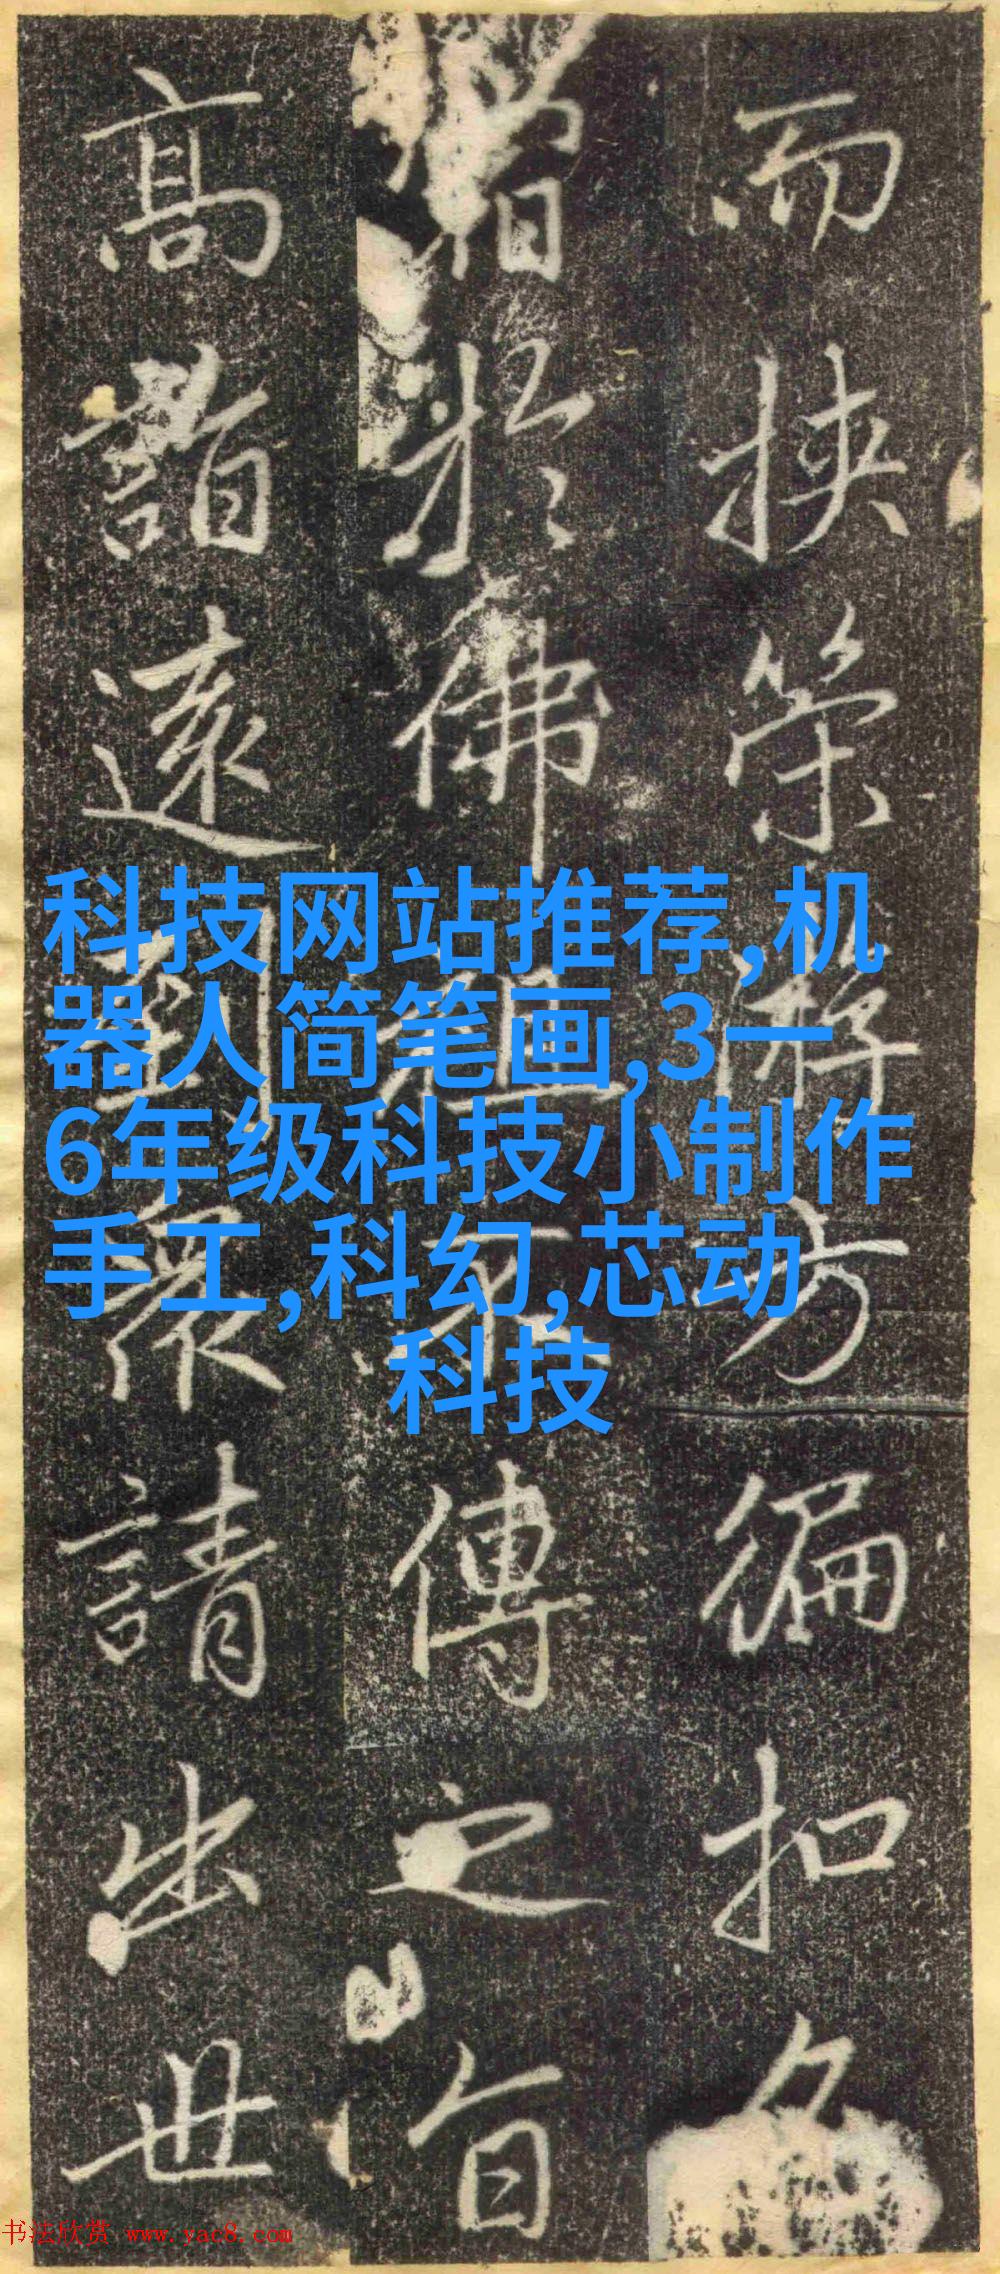 而挟策游方徧扣
於佛祖不傳之旨
高詣遠到衆請出世
科技网站推荐,机
器人简笔画,3一
6年级科技小制作
手工,科幻,芯动
科技
书法欣赏 www.yac8.com